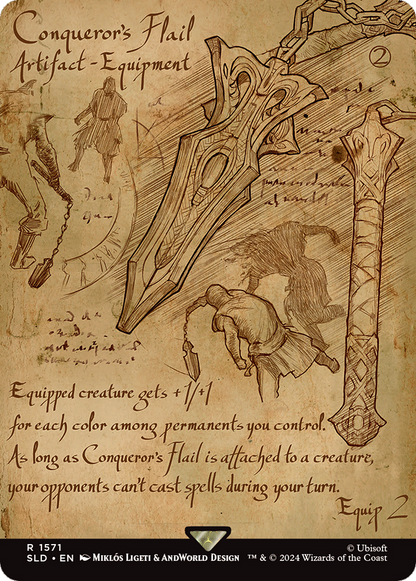 Conqueror's Flail
Artifact - Equipment
2
Equipped creature gets +1/+1
for each color among permanents you control.
As long as Conqueror's Flail is attached to a creature,
your opponents can't cast spells during your turn.
Equip 2
R 1571
SLD • EN MIKLÓS LIGETI & ANDWORLD DESIGN
© Ubisoft
™ & © 2024 Wizards of the Coast